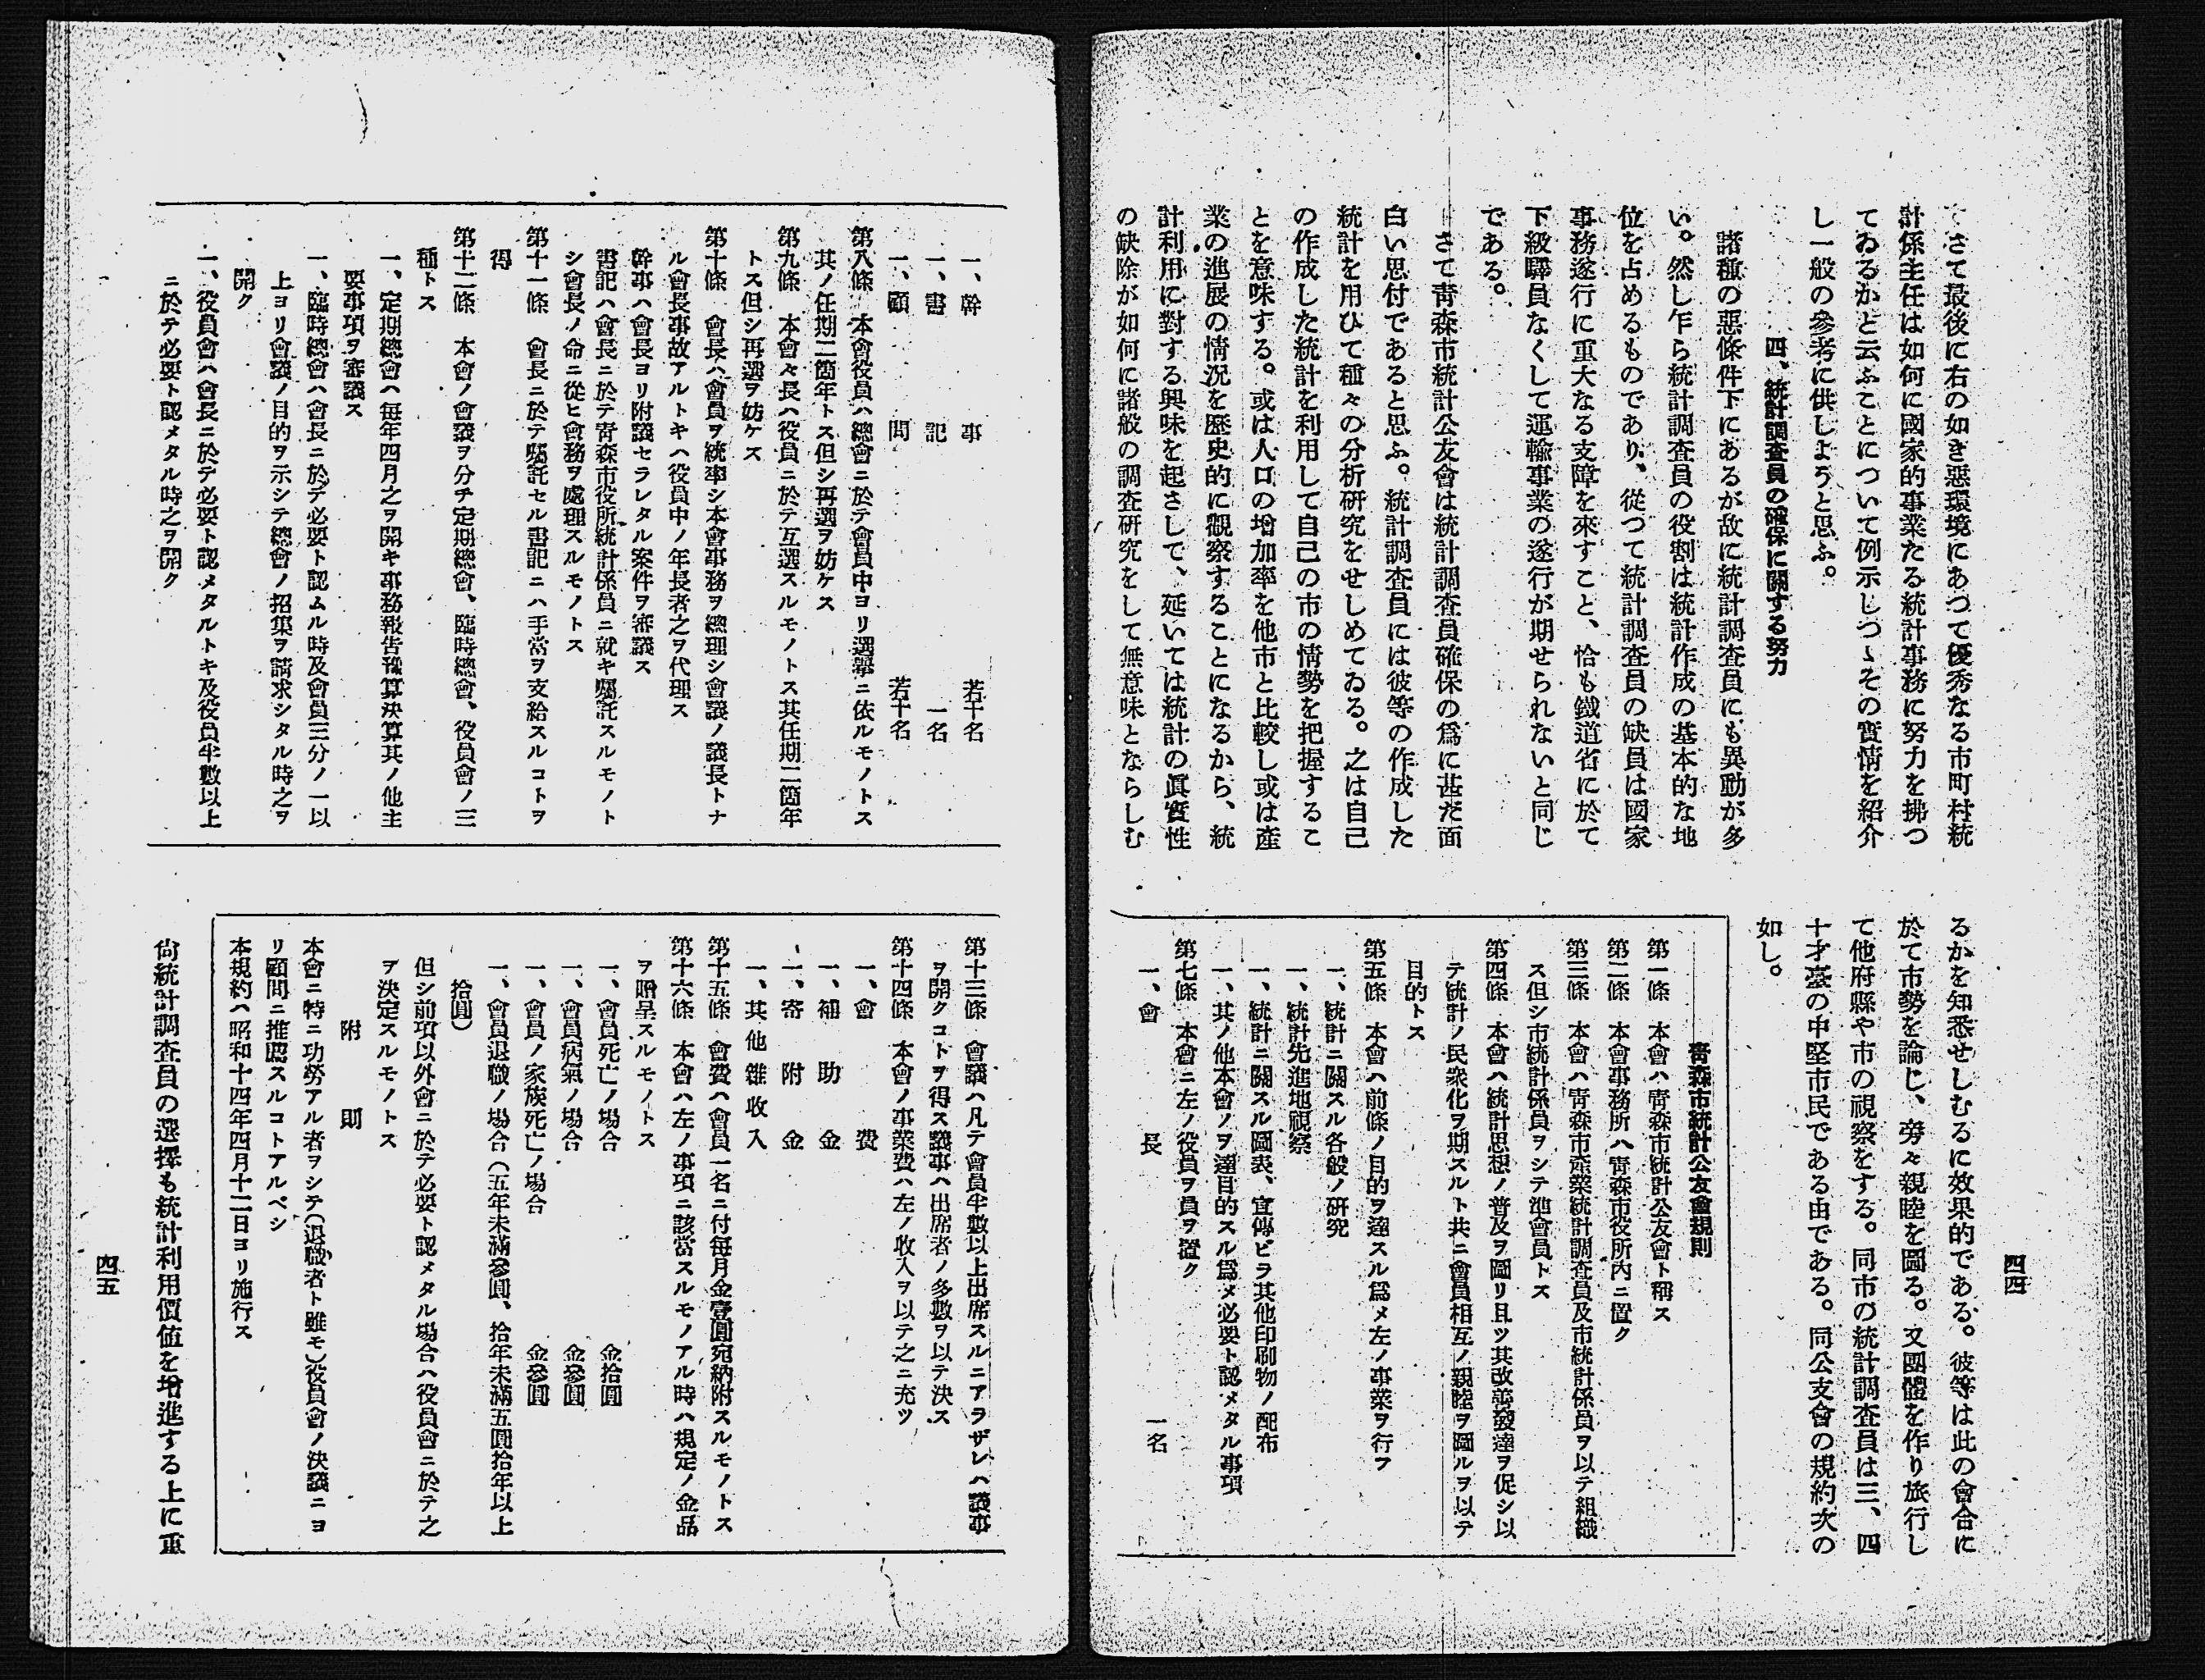 さて最後に右の如き惡環境にあつて優秀なる市町村統
計係主任は如何に國家的事業たる統計事務に努力を拂つ
てゐるかと云ふことについて例示しつゝその實情を紹介
し一般の參考に供しようと思ふ。
四、統計調査員の確保に關する努力
諸種の惡條件下にあるが故に統計調査員にも異動が多
い。然し乍ら統計調査員の役割は統計作成の基本的な地
位を占めるものであり、從つて統計調査員の缺員は國家
事務遂行に重大なる支障を來すこと、恰も鐵道省に於て
下級驛員なくして運輸事業の遂行が期せられないと同じ
である。
さて靑森市統計公友會は統計調査員確保の爲に甚だ面
白い思付であると思ふ。統計調査員には彼等の作成した
統計を用ひて種々の分析研究をせしめてゐる。之は自己
の作成した統計を利用して自己の市の情勢を把握するこ
とを意味する。或は人口の增加率を他市と比較し或は産
業の進展の情況を歷史的に觀察することになるから、統
計利用に對する興味を起さしで、延いては統計の眞實性
の缺除が如何に諸般の調査研究をして無意味とならしむ
るかを知悉せしむるに效果的である。彼等は此の會合に
於て市勢を論じ、旁々親睦を圖る。又團體を作り旅行し
て他府縣や市の視察をする。同市の統計調査員は三、四
十才臺の中堅市民である由である。同公支會の規約次の
如し。
靑森市統計公友會規則
第一條　本會ハ靑森市統計公友會ト稱ス
第二條　本會事務所ハ靑森市役所內ニ置ク
第三條　本會ハ靑森市產業統計調查員及市統計係員ヲ以テ組織
ス但シ市統計係員ヲシテ準會員トス
第四條　本會ハ統計思想ノ普及ヲ圖リ且ツ其改善發達ヲ促シ以
テ統計ノ民衆化ヲ期スルト共ニ會員相互ノ親睦ヲ圖ルヲ以テ
目的トス
第五條　本會ハ前條ノ目的ヲ達スル爲メ左ノ事業ヲ行フ
一、統計ニ關スル各般ノ研究
一、統計先進地視察
一、統計ニ關スル圖表、宣傳ビラ其他印刷物ノ配布
一、其ノ他本會ノヲ達目的スル爲メ必要ト認メタル事項
第七條　本會ニ左ノ役員ヲ員ヲ置ク
一、會　長　一名
四四
一、幹　事　若干名
一、書　記　一名
一、顧　問　若干名
第八條　本會役員ハ總會ニ於テ會員中ヨリ選擧ニ依ルモノトス
其ノ任期二箇年トス但シ再選ヲ妨ケス
第九條　本會々長ハ役員ニ於テ互選スルモノトス其任期二箇年
トス但シ再選ヲ妨ケズ
第十條　會長ハ會員ヲ統率シ本會事務ヲ總理シ會議ノ議長トナ
ル會長事故アルトキハ役員中ノ年長者之ヲ代理ス
幹事ハ會長ヨリ附議セラレタル案件ヲ審議ス
書記ハ會長ニ於テ靑森市役所統計係員ニ就キ囑託スルモノト
シ會長ノ命ニ從ヒ會務ヲ處理スルモノトス
第十一條　會長ニ於テ囑託セル書記ニハ手當ヲ支給スルコトヲ
得
第十二條　本會ノ會議ヲ分チ定期總會、臨時總會、役員會ノ三
種トス
一、定期總會ハ每年四月之ヲ開キ事務報告豫算決算其ノ他主
要事項ヲ審議ス
一、臨時總會ハ會長ニ於テ必要ト認ムル時及會員三分ノ一以
上ヨリ會議ノ目的ヲ示シテ總會ノ招集ヲ請求シタル時之ヲ
開ク
一、役員會ハ會長ニ於テ必要ト認メタルトキ及役員半數以上
ニ於テ必要ト認メタル時之ヲ開ク
第十三條　會議ハ凡テ會員半數以上出席スルニアラザレハ議事
ヲ開クコトヲ得ス議事ハ出席者ノ多數ヲ以テ決ス
第十四條　本會ノ事業費ハ左ノ收入ヲ以テ之ニ充ツ
一、會　費
一、補　助　金
一、寄　附　金
一、其他雜收入
第十五條　會費ハ會員一名ニ付每月金壹圓宛納附スルモノトス
第十六條　本會ハ左ノ事項ニ該當スルモノアル時ハ規定ノ金品
ヲ贈呈スルモノトス
一、會員死亡ノ場合　金拾圓
一、會員病氣ノ場合　金參圓
一、會員ノ家族死亡ノ場合　金參圓
一、會員退職ノ場合（五年未滿參圓、拾年未滿五圓拾年以上
拾圓）
但シ前項以外會ニ於テ必要ト認メタル場合ハ役員會ニ於テ之
ヲ決定スルモノトス
附　則
本會ニ特ニ功勞アル者ヲシテ（退職者ト雖モ）役員會ノ決議ニヨ
リ顧問ニ推薦スルコトアルベシ
本規約ハ昭和十四年四月十二日ヨリ施行ス
尙統計調査員の選擇も統計利用價値を增進する上に重
四五